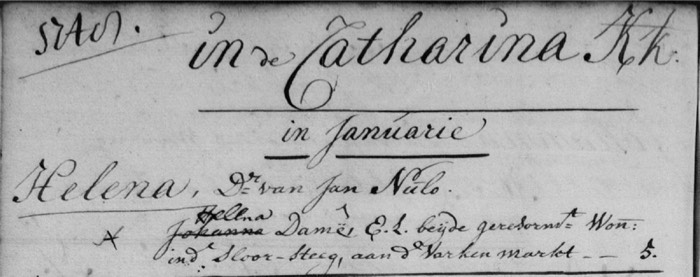 in de Catharina Kk.
in Januarie
Helena, Dr. van Jan Nulo.
Hellena
Johanna Dames E. L. beÿde gereformt. Won:
ind. Sloor-Steeg, aan d. Varken markt -- 5.